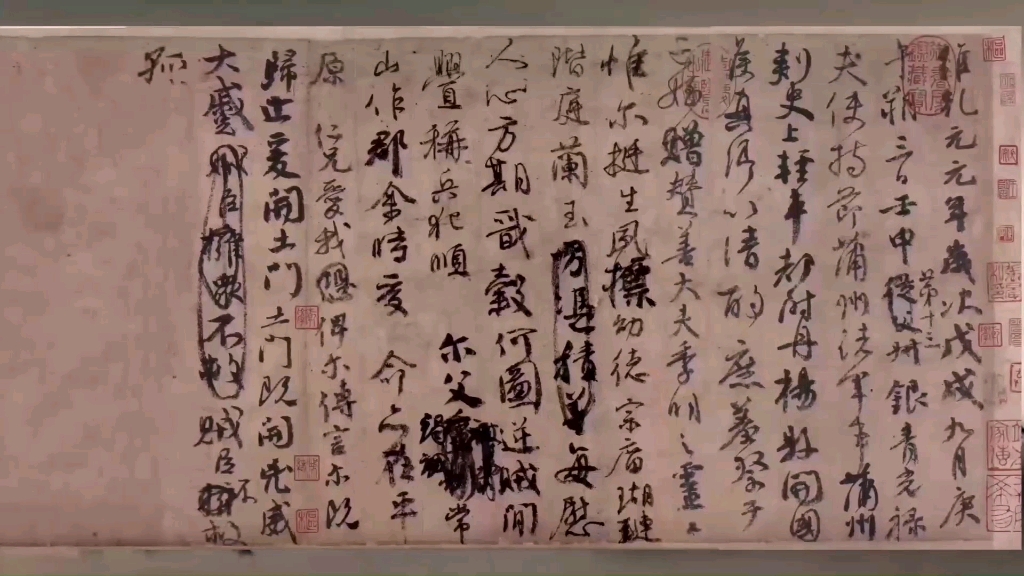 維乾元元年歲次戊戌九月庚
午朔三日壬申第十三從父叔銀青光祿
夫使持節蒲州諸軍事蒲州
刺史上輕車都尉丹楊縣開國
侯真卿以清酌庶羞祭于
亡姪贈贊善大夫季明之靈曰
惟爾挺生夙標幼德宗廟瑚璉
階庭蘭玉方憑積善每慰
人心方期戩穀何圖逆賊閒
舋稱兵犯順 爾父竭誠常
山作郡余時受 命亦在平
原 仁兄愛我恐俾爾傳言爾既
歸止爰開土門土門既開凶威
大蹙賊臣擁衆不救賊臣不擁救
孤